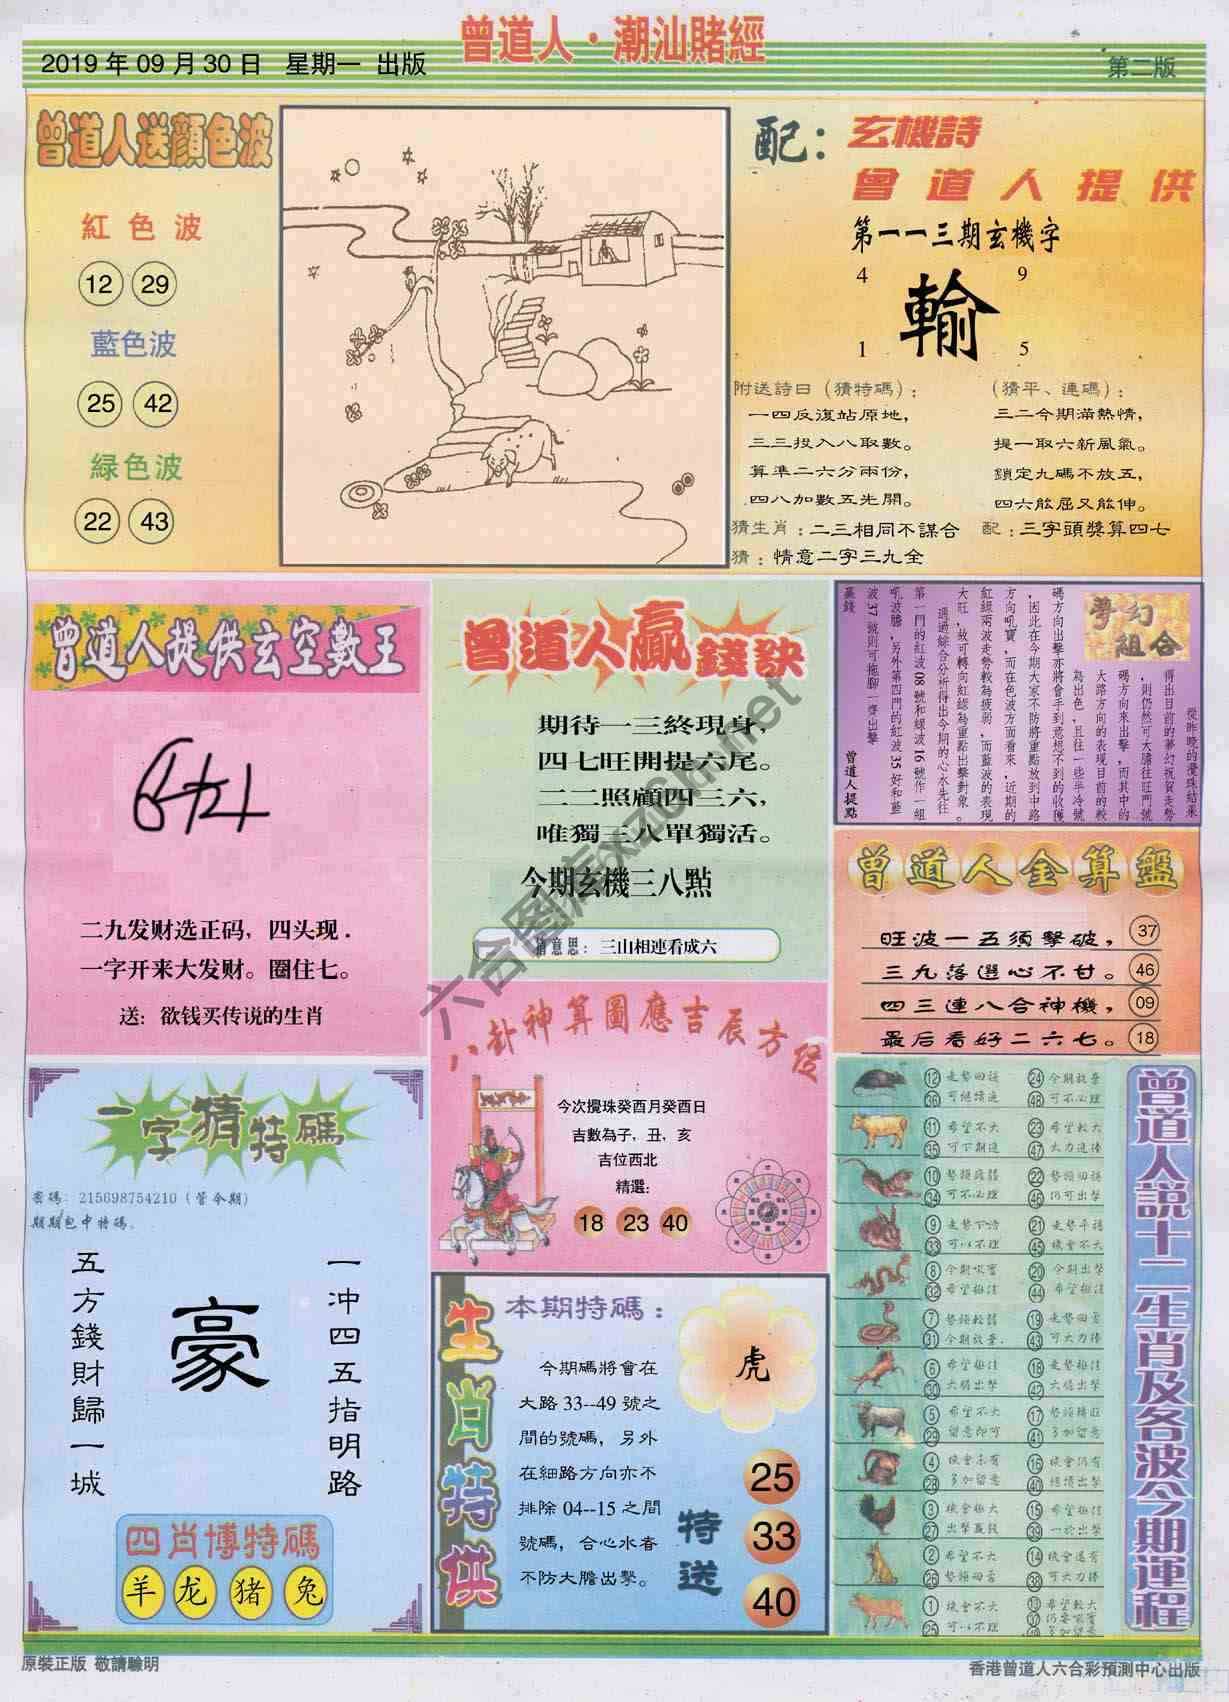 曾道人·潮汕賭經
2019年09月30日 星期一 出版
第二版
曾道人送顏色波
紅色波
12 29
藍色波
25 42
緑色波
22 43
配：玄機詩
曾道人提供
第一一三期玄機字
4 9
輸
1 5
附送詩曰（猜特碼）：
一四反復站原地，
三三投入八取數。
算準二六分兩份，
四八加數五先開。
（猜平、連碼）：
三二今期滿熱情，
提一取六新風氣。
鎖定九碼不放五，
四六能屈又能伸。
猜生肖：二三相同不謀合
配：三字頭獎算四七
猜：情意二字三九全
曾道人提供玄空數王
二九发财选正码，四头现.
一字开来大发财。圈住七。
送：欲钱买传说的生肖
曾道人贏錢訣
期待一三終現身，
四七旺開提六尾。
二二照顧四三六，
唯獨三八單獨活。
今期玄機三八點
猜意思：三山相連看成六
夢幻組合
從昨晚的攪珠結果
得出目前的夢幻祝賀走勢
，則仍然可大膽往旺門號
碼方向來出擊，而其中的
大路方向的表現目前的較
為出色，且往一些半冷號
碼方向出擊亦將會手到意想不到的收穫
，因此在今期大家不防將重點放到中路
方向吼寶，而在色波方面看來，近期的
紅綠兩波走勢較為疲弱，而藍波的表現
大旺，故可轉向紅綠為重點出擊對象。
通過綜合分析得出今期的心水先往
第一門的紅波08號和綠波16號作一組
吼波膽，另外第四門的紅波35好和藍
波37號則可拖腳一齊出擊
贏錢
曾道人提點
曾道人金算盤
旺波一五須擊破， 37
三九落選心不甘。 46
四三連八合神機， 09
最后看好二六七。 18
八卦神算圖應吉辰方位
今次攪珠癸酉月癸酉日
吉數為子，丑，亥
吉位西北
精選：
18 23 40
一字猜特碼
密碼：215698754210（管今期）
期期包中特碼。
一冲四五指明路
豪
五方錢財歸一城
四肖博特碼
羊 龙 猪 兔
生肖特供
本期特碼：
虎
今期碼將會在
大路33--49號之
間的號碼，另外
在細路方向亦不
排除04--15之間
號碼，合心水者
不防大膽出擊。
特送
25
33
40
曾道人說十二生肖及各波今期運程
12 走勢回穩 24 今期放棄
36 可繼續追 48 可不必理
11 希望不大 23 希望較大
35 可下期追 47 大力追捧
10 勢頭疲弱 22 勢頭回穩
34 可不必理 46 仍可出擊
9 走勢下滑 21 走勢平穩
33 可以不理 45 機會不大
8 今期吼實 20 今期出擊
32 希望極佳 44 希望極佳
7 勢頭較弱 19 走勢回番
31 今期放棄 43 可大力捧
6 希望極佳 18 走勢極佳
30 大膽出擊 42 大膽出擊
5 希望不大 17 勢頭轉旺
29 留意即可 41 多加留意
4 機會未有 16 機會仍有
28 多加留意 40 繼續出擊
3 機會極大 15 希望極佳
27 出擊贏錢 39 一於出擊
2 希望不大 14 機會還有
26 勢頭回番 38 可大力捧
1 機會不大 13 希望較大
25 可以不理 37 仍要吼實
49 多加留意
六合图库xzt6h.net
原裝正版 敬請驗明
香港曾道人六合彩預測中心出版